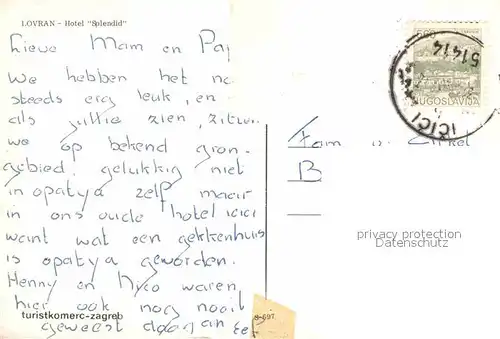 LOVRAN - Hotel "Splendid"
Lieve Mam en Pap
We hebben het na
steeds erg leuk, en
als jullie zien, zitten
we op bekend gron-
gebied, gelukkig niet
in opatya zelf maar
in ons oude hotel icici
want wat een gekkenhuis
is opatya geworden.
Henny en Nico waren
hier ook nog nooit
geweest
turistkomerc-zagreb
JUGOSLAVIJA
51414
IČIĆI
Fam
B
privacy protection
Datenschutz